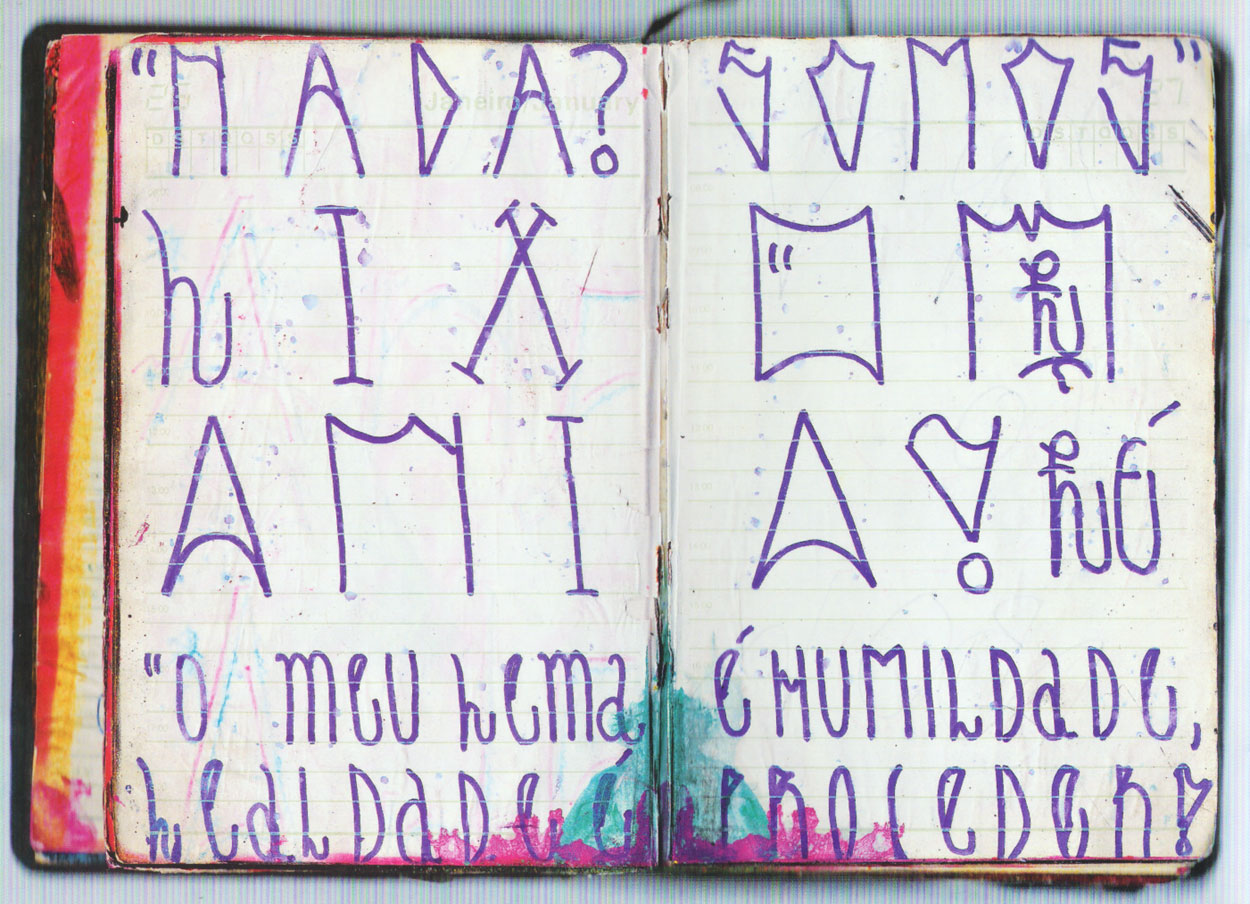 "NADA? SOMOS"
26 Janeiro/January 27
D S T Q Q S S D S T Q Q S S
LIX "OM
ANIA!
"O MEU LEMA É HUMILDADE,
LEALDADE É PROCEDER!